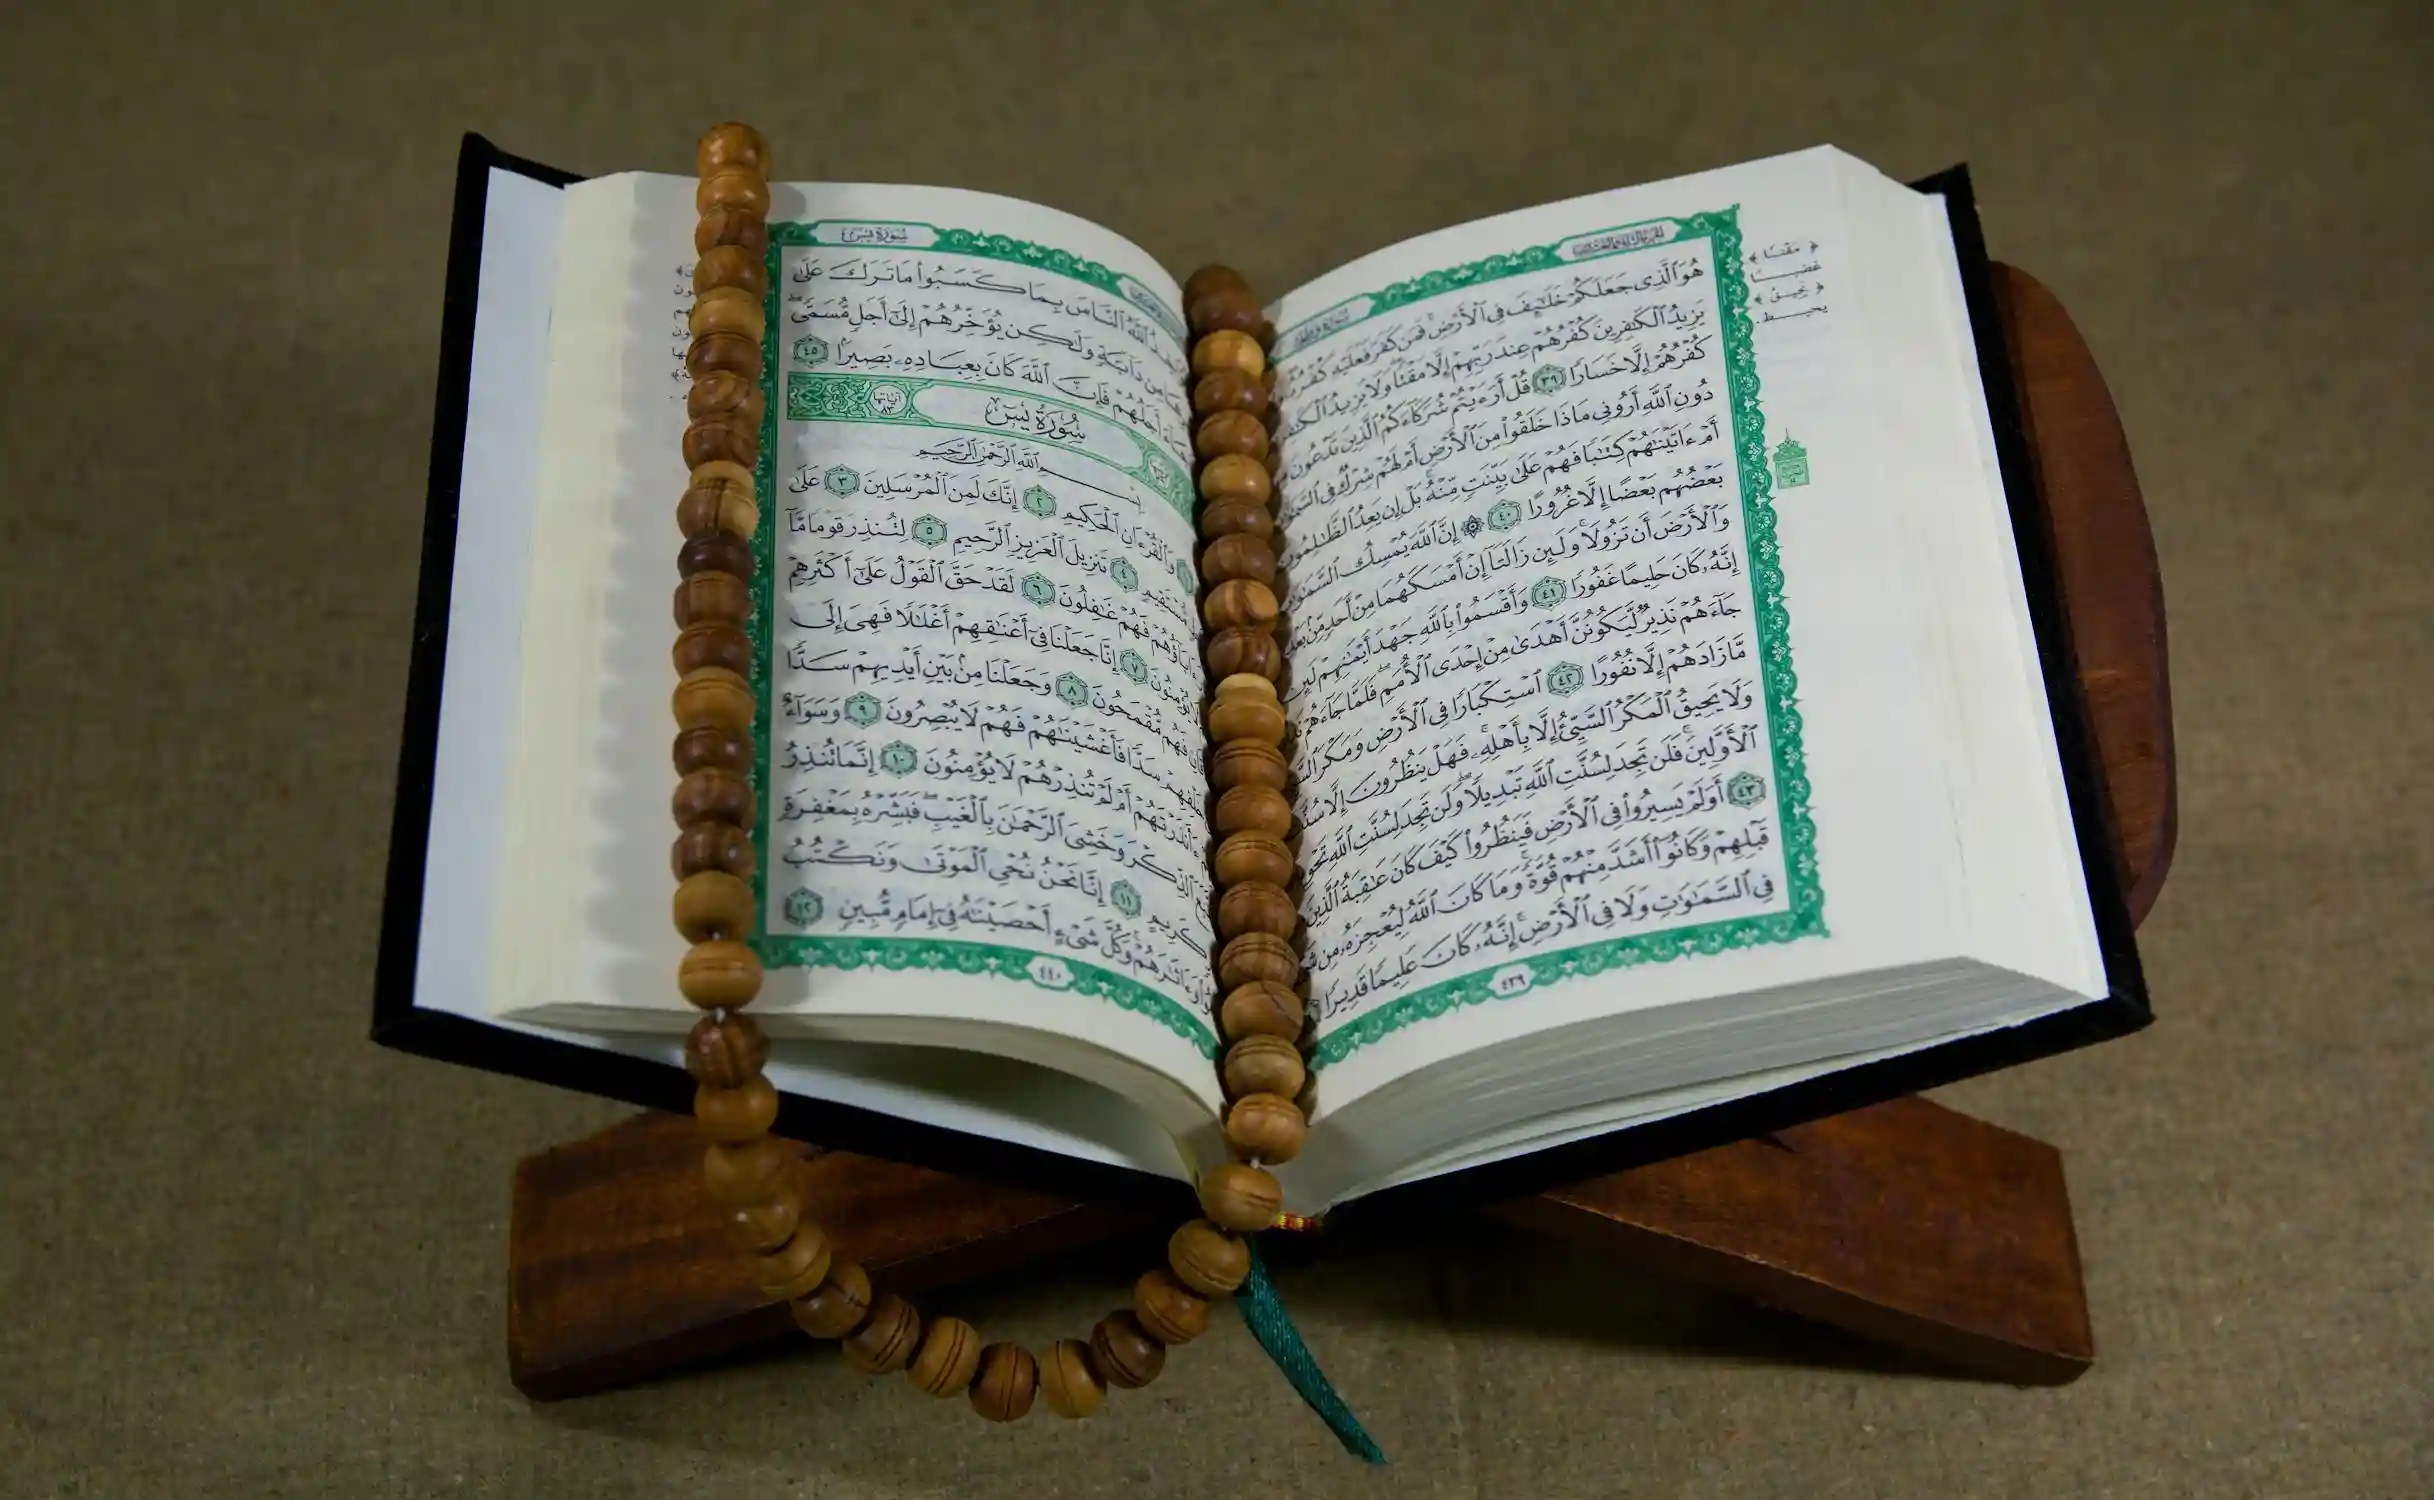 سُورَةُ فَاطِرٍ
هُوَ ٱلَّذِى جَعَلَكُمْ خَلَٰٓئِفَ فِى ٱلْأَرْضِ ۚ فَمَن كَفَرَ فَعَلَيْهِ كُفْرُهُۥ
يَزِيدُ ٱلْكَٰفِرِينَ كُفْرُهُمْ عِندَ رَبِّهِمْ إِلَّا مَقْتًا ۖ وَلَا يَزِيدُ ٱلْكَٰفِرِينَ
كُفْرُهُمْ إِلَّا خَسَارًا ٣٩ قُلْ أَرَءَيْتُمْ شُرَكَآءَكُمُ ٱلَّذِينَ تَدْعُونَ
دُونِ ٱللَّهِ أَرُونِى مَاذَا خَلَقُوا۟ مِنَ ٱلْأَرْضِ أَمْ لَهُمْ شِرْكٌ فِى
أَمْ ءَاتَيْنَٰهُمْ كِتَٰبًا فَهُمْ عَلَىٰ بَيِّنَتٍ مِّنْهُ ۚ بَلْ إِن يَعِدُ ٱلظَّٰلِمُونَ
بَعْضُهُم بَعْضًا إِلَّا غُرُورًا ٤٠ ۞ إِنَّ ٱللَّهَ يُمْسِكُ ٱلسَّمَٰوَٰتِ
وَٱلْأَرْضَ أَن تَزُولَا ۚ وَلَئِن زَالَتَآ إِنْ أَمْسَكَهُمَا مِنْ أَحَدٍ مِّنۢ بَعْدِهِۦٓ
إِنَّهُۥ كَانَ حَلِيمًا غَفُورًا ٤١ وَأَقْسَمُوا۟ بِٱللَّهِ جَهْدَ أَيْمَٰنِهِمْ لَئِن
جَآءَهُمْ نَذِيرٌ لَّيَكُونُنَّ أَهْدَىٰ مِنْ إِحْدَى ٱلْأُمَمِ ۖ فَلَمَّا جَآءَهُمْ
مَّا زَادَهُمْ إِلَّا نُفُورًا ٤٢ ٱسْتِكْبَارًا فِى ٱلْأَرْضِ وَمَكْرَ
وَلَا يَحِيقُ ٱلْمَكْرُ ٱلسَّيِّئُ إِلَّا بِأَهْلِهِۦ ۚ فَهَلْ يَنظُرُونَ إِلَّا سُنَّتَ
ٱلْأَوَّلِينَ ۚ فَلَن تَجِدَ لِسُنَّتِ ٱللَّهِ تَبْدِيلًا ۖ وَلَن تَجِدَ لِسُنَّتِ ٱللَّهِ
٤٣ أَوَلَمْ يَسِيرُوا۟ فِى ٱلْأَرْضِ فَيَنظُرُوا۟ كَيْفَ كَانَ عَٰقِبَةُ ٱلَّذِينَ
قَبْلِهِمْ وَكَانُوٓا۟ أَشَدَّ مِنْهُمْ قُوَّةً ۚ وَمَا كَانَ ٱللَّهُ لِيُعْجِزَهُۥ مِن
فِى ٱلسَّمَٰوَٰتِ وَلَا فِى ٱلْأَرْضِ ۚ إِنَّهُۥ كَانَ عَلِيمًا قَدِيرًا
٤٣٩
﴿ مَقْتًا ﴾
غضبا
﴿ يَحِيقُ ﴾
يحيط
سُورَةُ يسٓ
ٱللَّهُ ٱلنَّاسَ بِمَا كَسَبُوا۟ مَا تَرَكَ عَلَىٰ
مِن دَآبَّةٍ وَلَٰكِن يُؤَخِّرُهُمْ إِلَىٰٓ أَجَلٍ مُّسَمًّى ۖ
جَآءَ أَجَلُهُمْ فَإِنَّ ٱللَّهَ كَانَ بِعِبَادِهِۦ بَصِيرًۢا ٤٥
سُورَةُ يسٓ آياتها ٨٣
بِسْمِ ٱللَّهِ ٱلرَّحْمَٰنِ ٱلرَّحِيمِ
١ وَٱلْقُرْءَانِ ٱلْحَكِيمِ ٢ إِنَّكَ لَمِنَ ٱلْمُرْسَلِينَ ٣ عَلَىٰ
مُّسْتَقِيمٍ ٤ تَنزِيلَ ٱلْعَزِيزِ ٱلرَّحِيمِ ٥ لِتُنذِرَ قَوْمًا مَّآ
ءَابَآؤُهُمْ فَهُمْ غَٰفِلُونَ ٦ لَقَدْ حَقَّ ٱلْقَوْلُ عَلَىٰٓ أَكْثَرِهِمْ
يُؤْمِنُونَ ٧ إِنَّا جَعَلْنَا فِىٓ أَعْنَٰقِهِمْ أَغْلَٰلًا فَهِىَ إِلَى
فَهُم مُّقْمَحُونَ ٨ وَجَعَلْنَا مِنۢ بَيْنِ أَيْدِيهِمْ سَدًّا
خَلْفِهِمْ سَدًّا فَأَغْشَيْنَٰهُمْ فَهُمْ لَا يُبْصِرُونَ ٩ وَسَوَآءٌ
ءَأَنذَرْتَهُمْ أَمْ لَمْ تُنذِرْهُمْ لَا يُؤْمِنُونَ ١٠ إِنَّمَا تُنذِرُ
ٱلذِّكْرَ وَخَشِىَ ٱلرَّحْمَٰنَ بِٱلْغَيْبِ ۖ فَبَشِّرْهُ بِمَغْفِرَةٍ
كَرِيمٍ ١١ إِنَّا نَحْنُ نُحْىِ ٱلْمَوْتَىٰ وَنَكْتُبُ
وَءَاثَٰرَهُمْ ۚ وَكُلَّ شَىْءٍ أَحْصَيْنَٰهُ فِىٓ إِمَامٍ مُّبِينٍ ١٢
٤٤٠